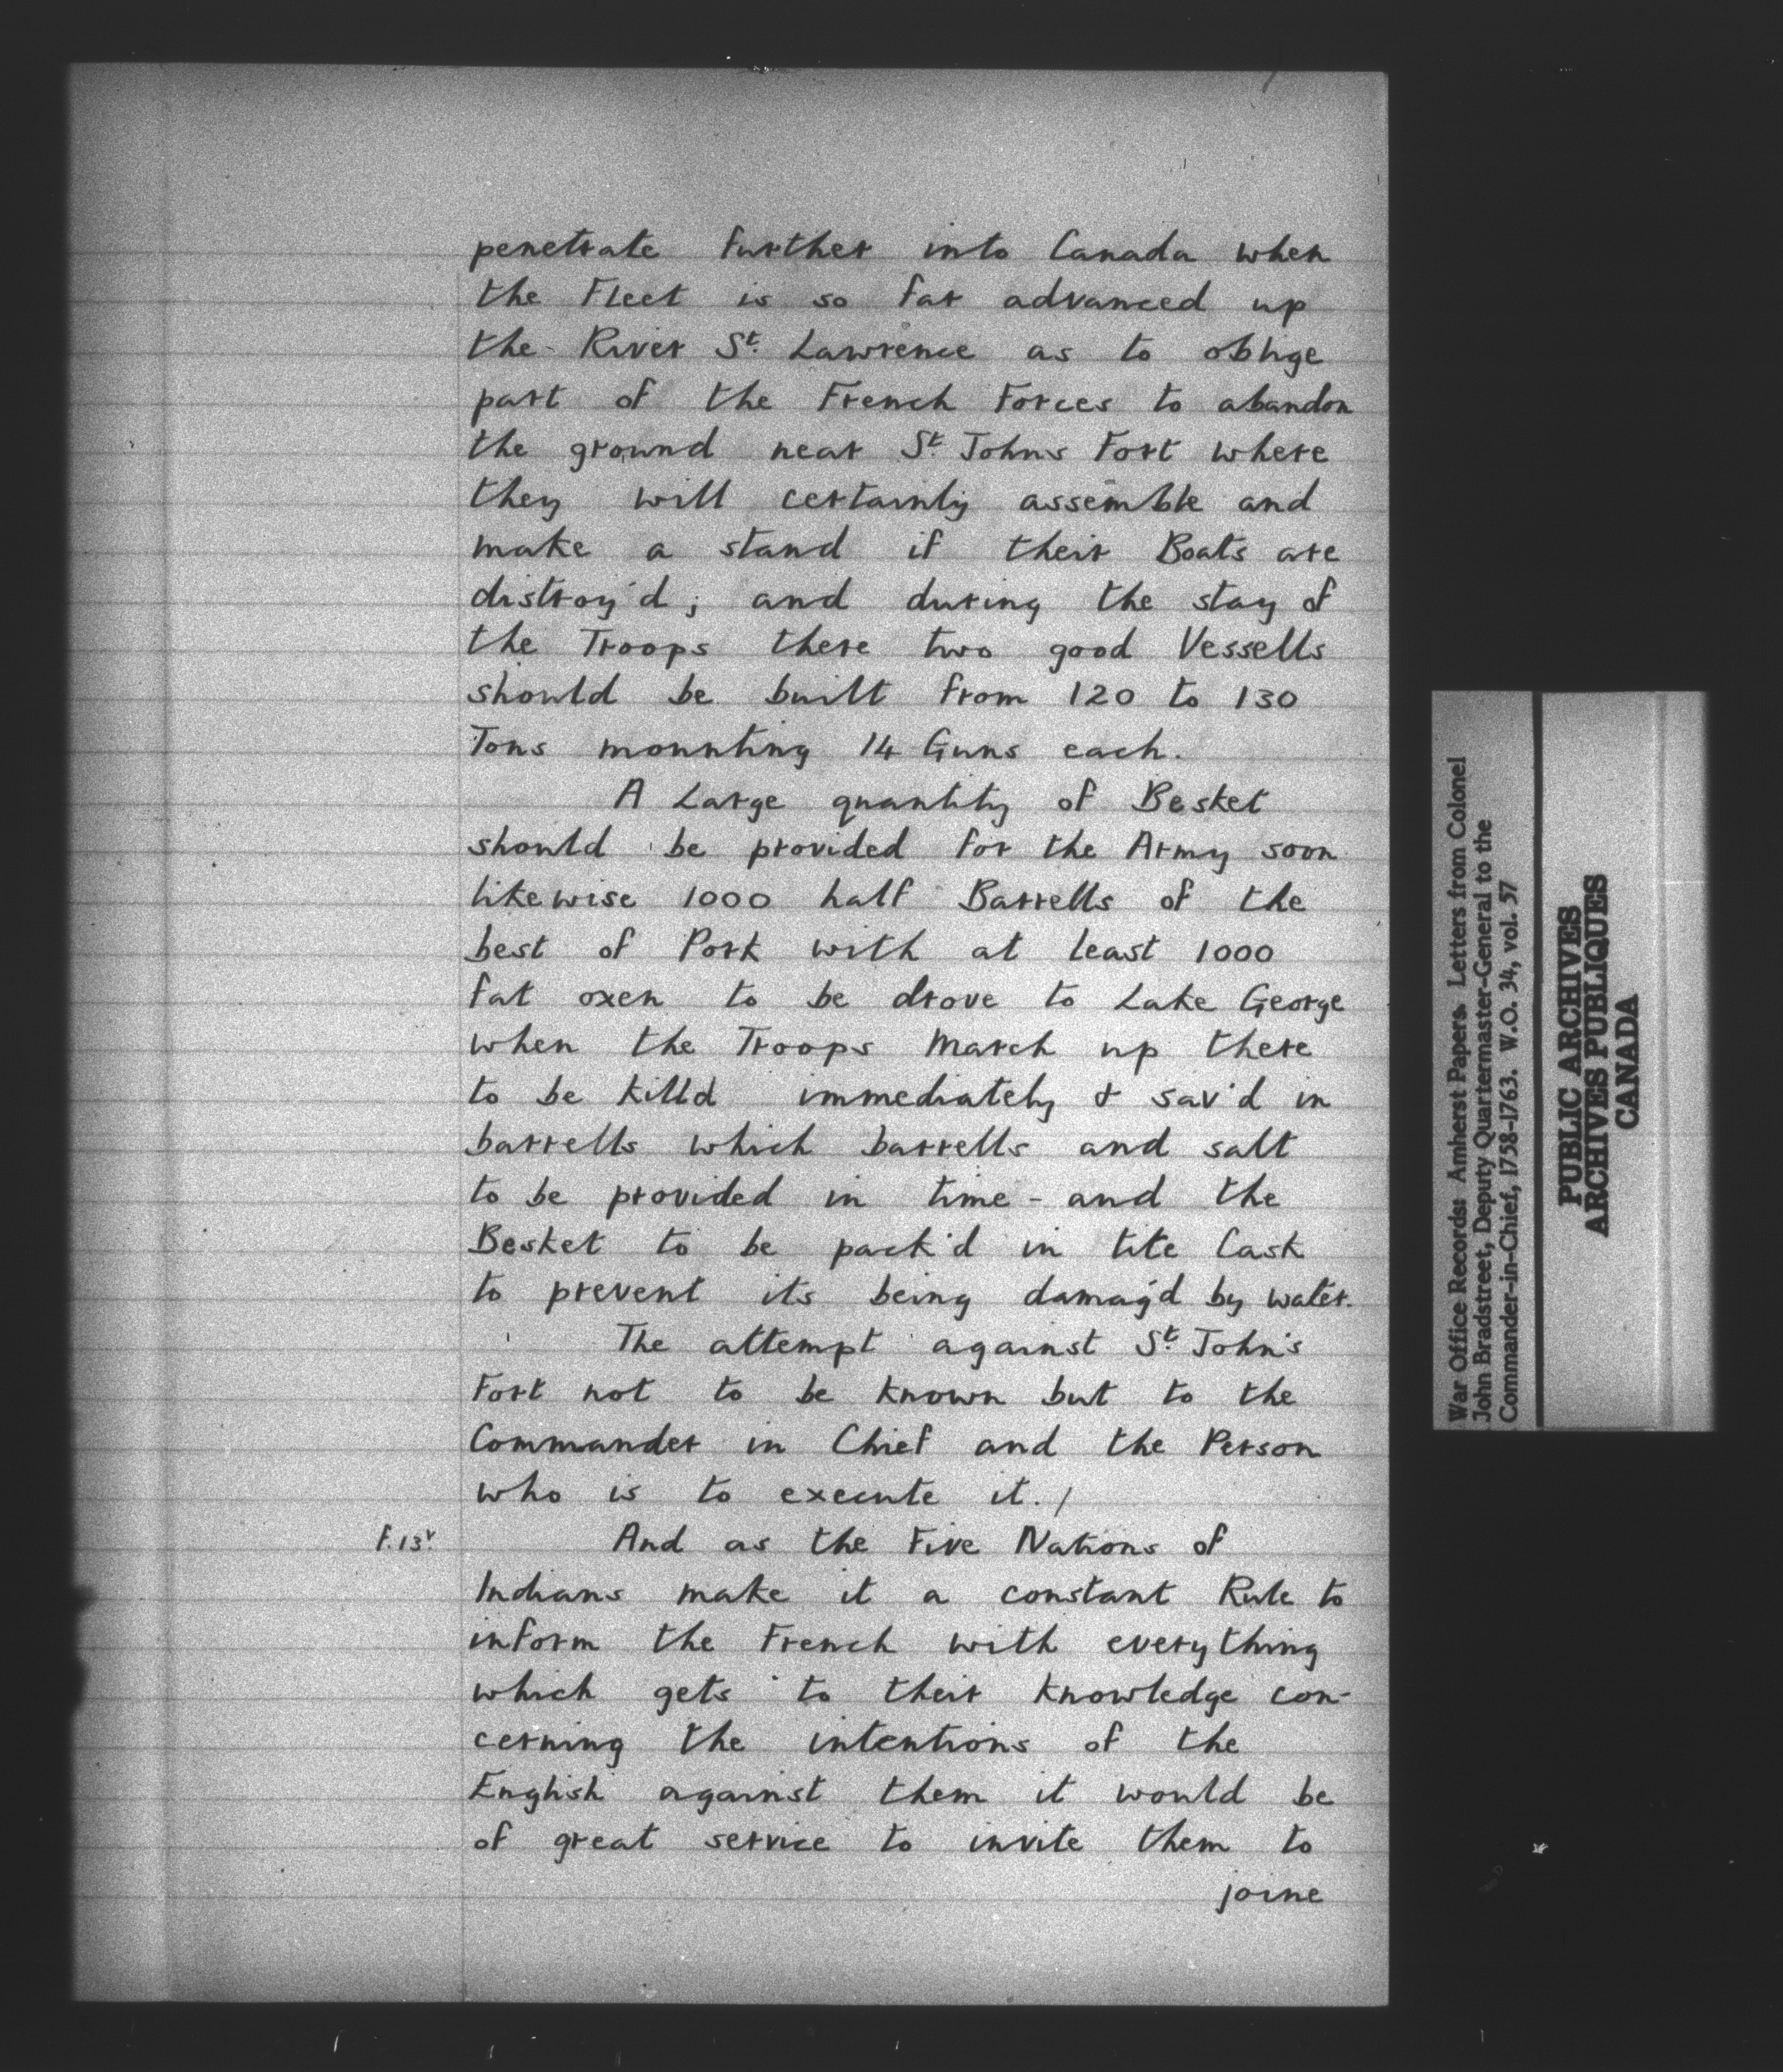 penetrate further into Canada when
the Fleet is so far advanced up
the River St. Lawrence as to oblige
part of the French Forces to abandon
the ground near St. Johns Fort where
they will certainly assemble and
make a stand if their Boats are
distroy'd; and during the stay of
the Troops there two good Vessells
should be built from 120 to 130
Tons mounting 14 Guns each.
A Large quantity of Besket
should be provided for the Army soon
likewise 1000 half Barrells of the
best of Pork with at least 1000
fat oxen to be drove to Lake George
when the Troops march up there
to be killd immediately & sav'd in
barrells which barrells and salt
to be provided in time - and the
Besket to be pack'd in tite Cask
to prevent its being damag'd by water.
The attempt against St. John's
Fort not to be known but to the
Commander in Chief and the Person
who is to execute it./
f.13v. And as the Five Nations of
Indians make it a constant Rule to
inform the French with everything
which gets to their knowledge con-
cerning the intentions of the
English against them it would be
of great service to invite them to
joine
War Office Records: Amherst Papers. Letters from Colonel
John Bradstreet, Deputy Quartermaster-General to the
Commander-in-Chief, 1758-1763. W.O. 34, vol. 57
PUBLIC ARCHIVES
ARCHIVES PUBLIQUES
CANADA